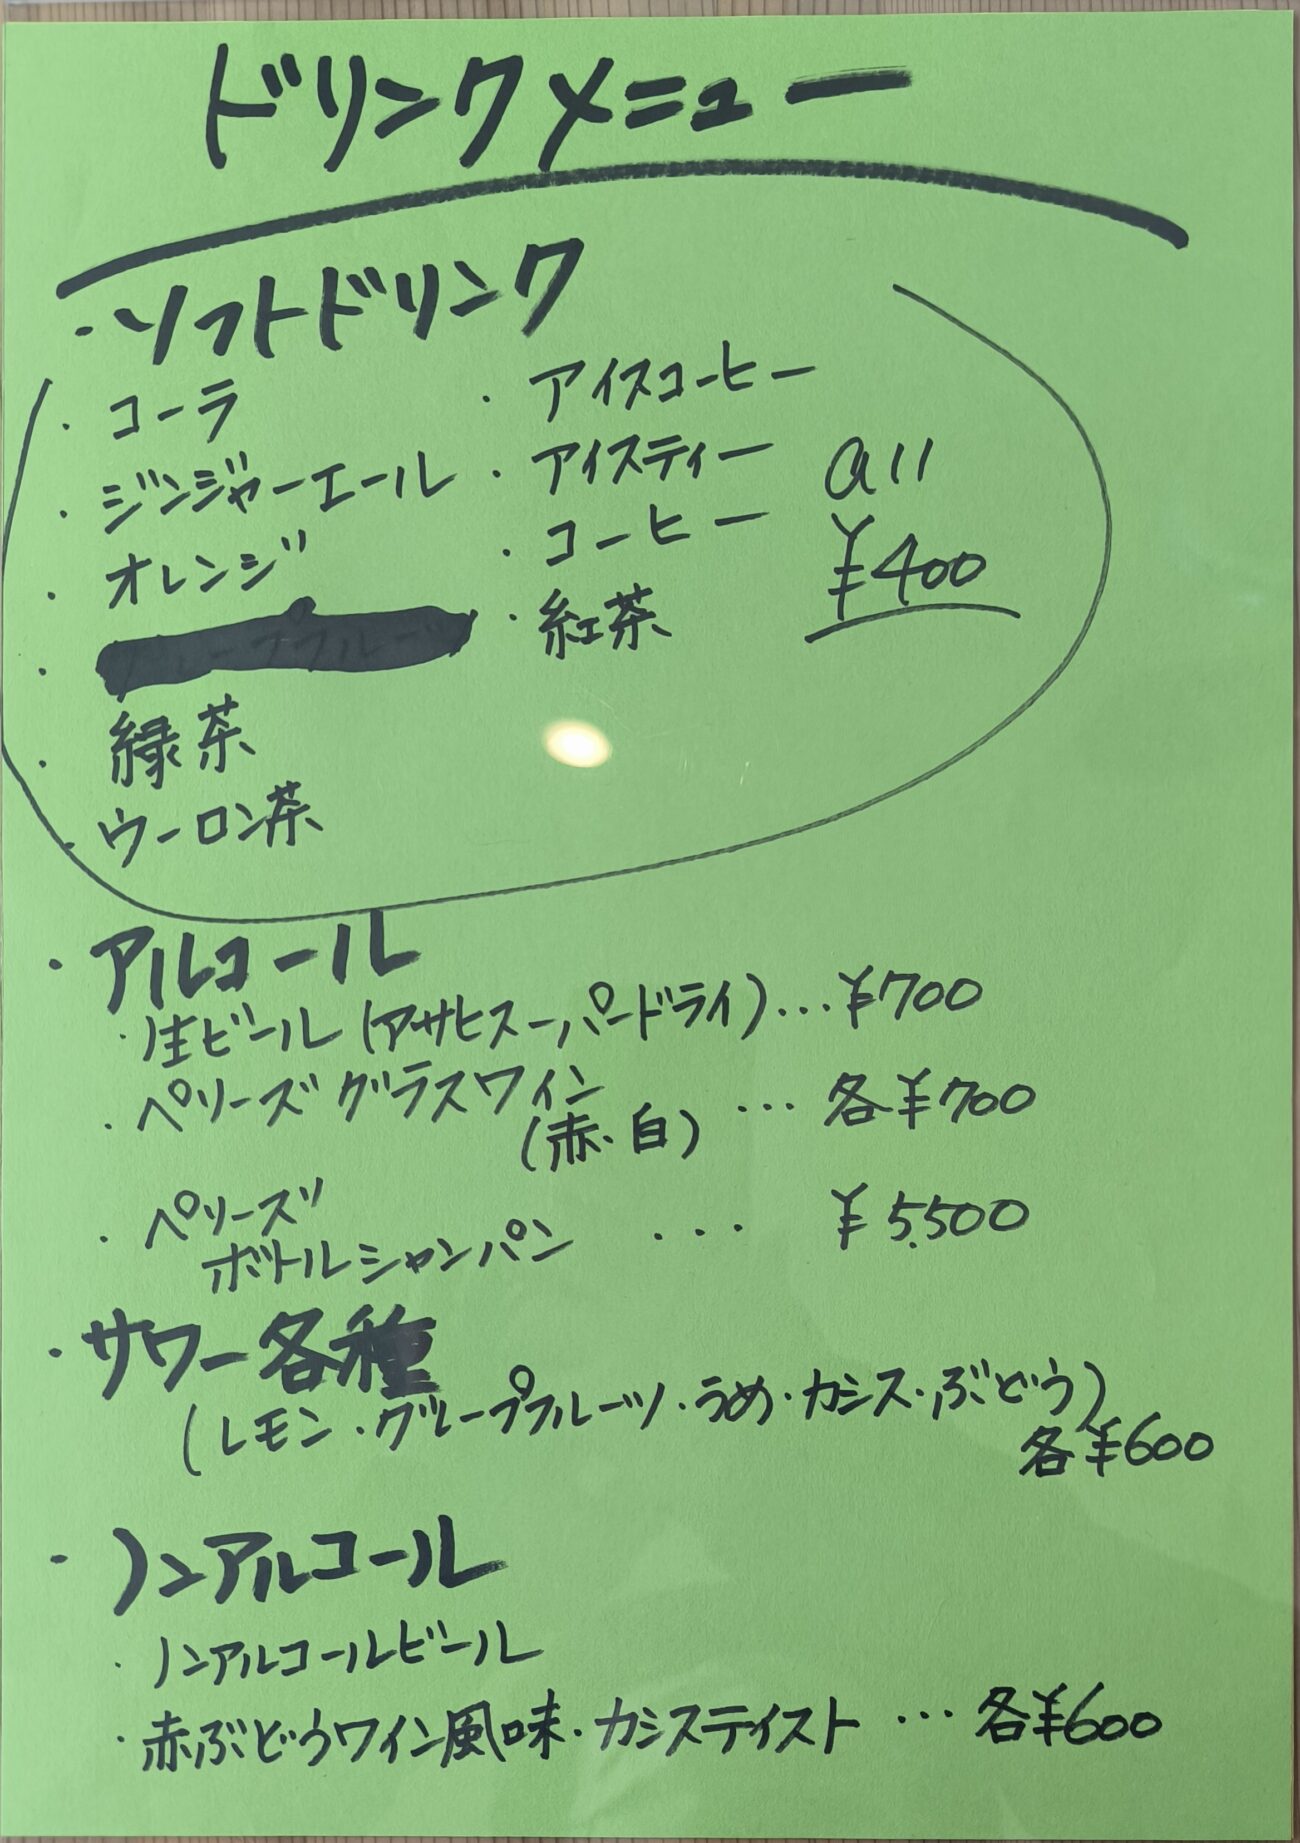 ドリンクメニュー
・ソフトドリンク
・コーラ
・ジンジャーエール
・オレンジ
・
・緑茶
・ウーロン茶
・アイスコーヒー
・アイスティー
・コーヒー
・紅茶
all
¥400
・アルコール
・生ビール(アサヒスーパードライ)…¥700
・ペリーズグラスワイン
(赤・白) … 各¥700
・ペリーズ
ボトルシャンパン … ¥5,500
・サワー各種
(レモン・グレープフルーツ・うめ・カシス・ぶどう)
各¥600
・ノンアルコール
・ノンアルコールビール
・赤ぶどうワイン風味・カシステイスト … 各¥600